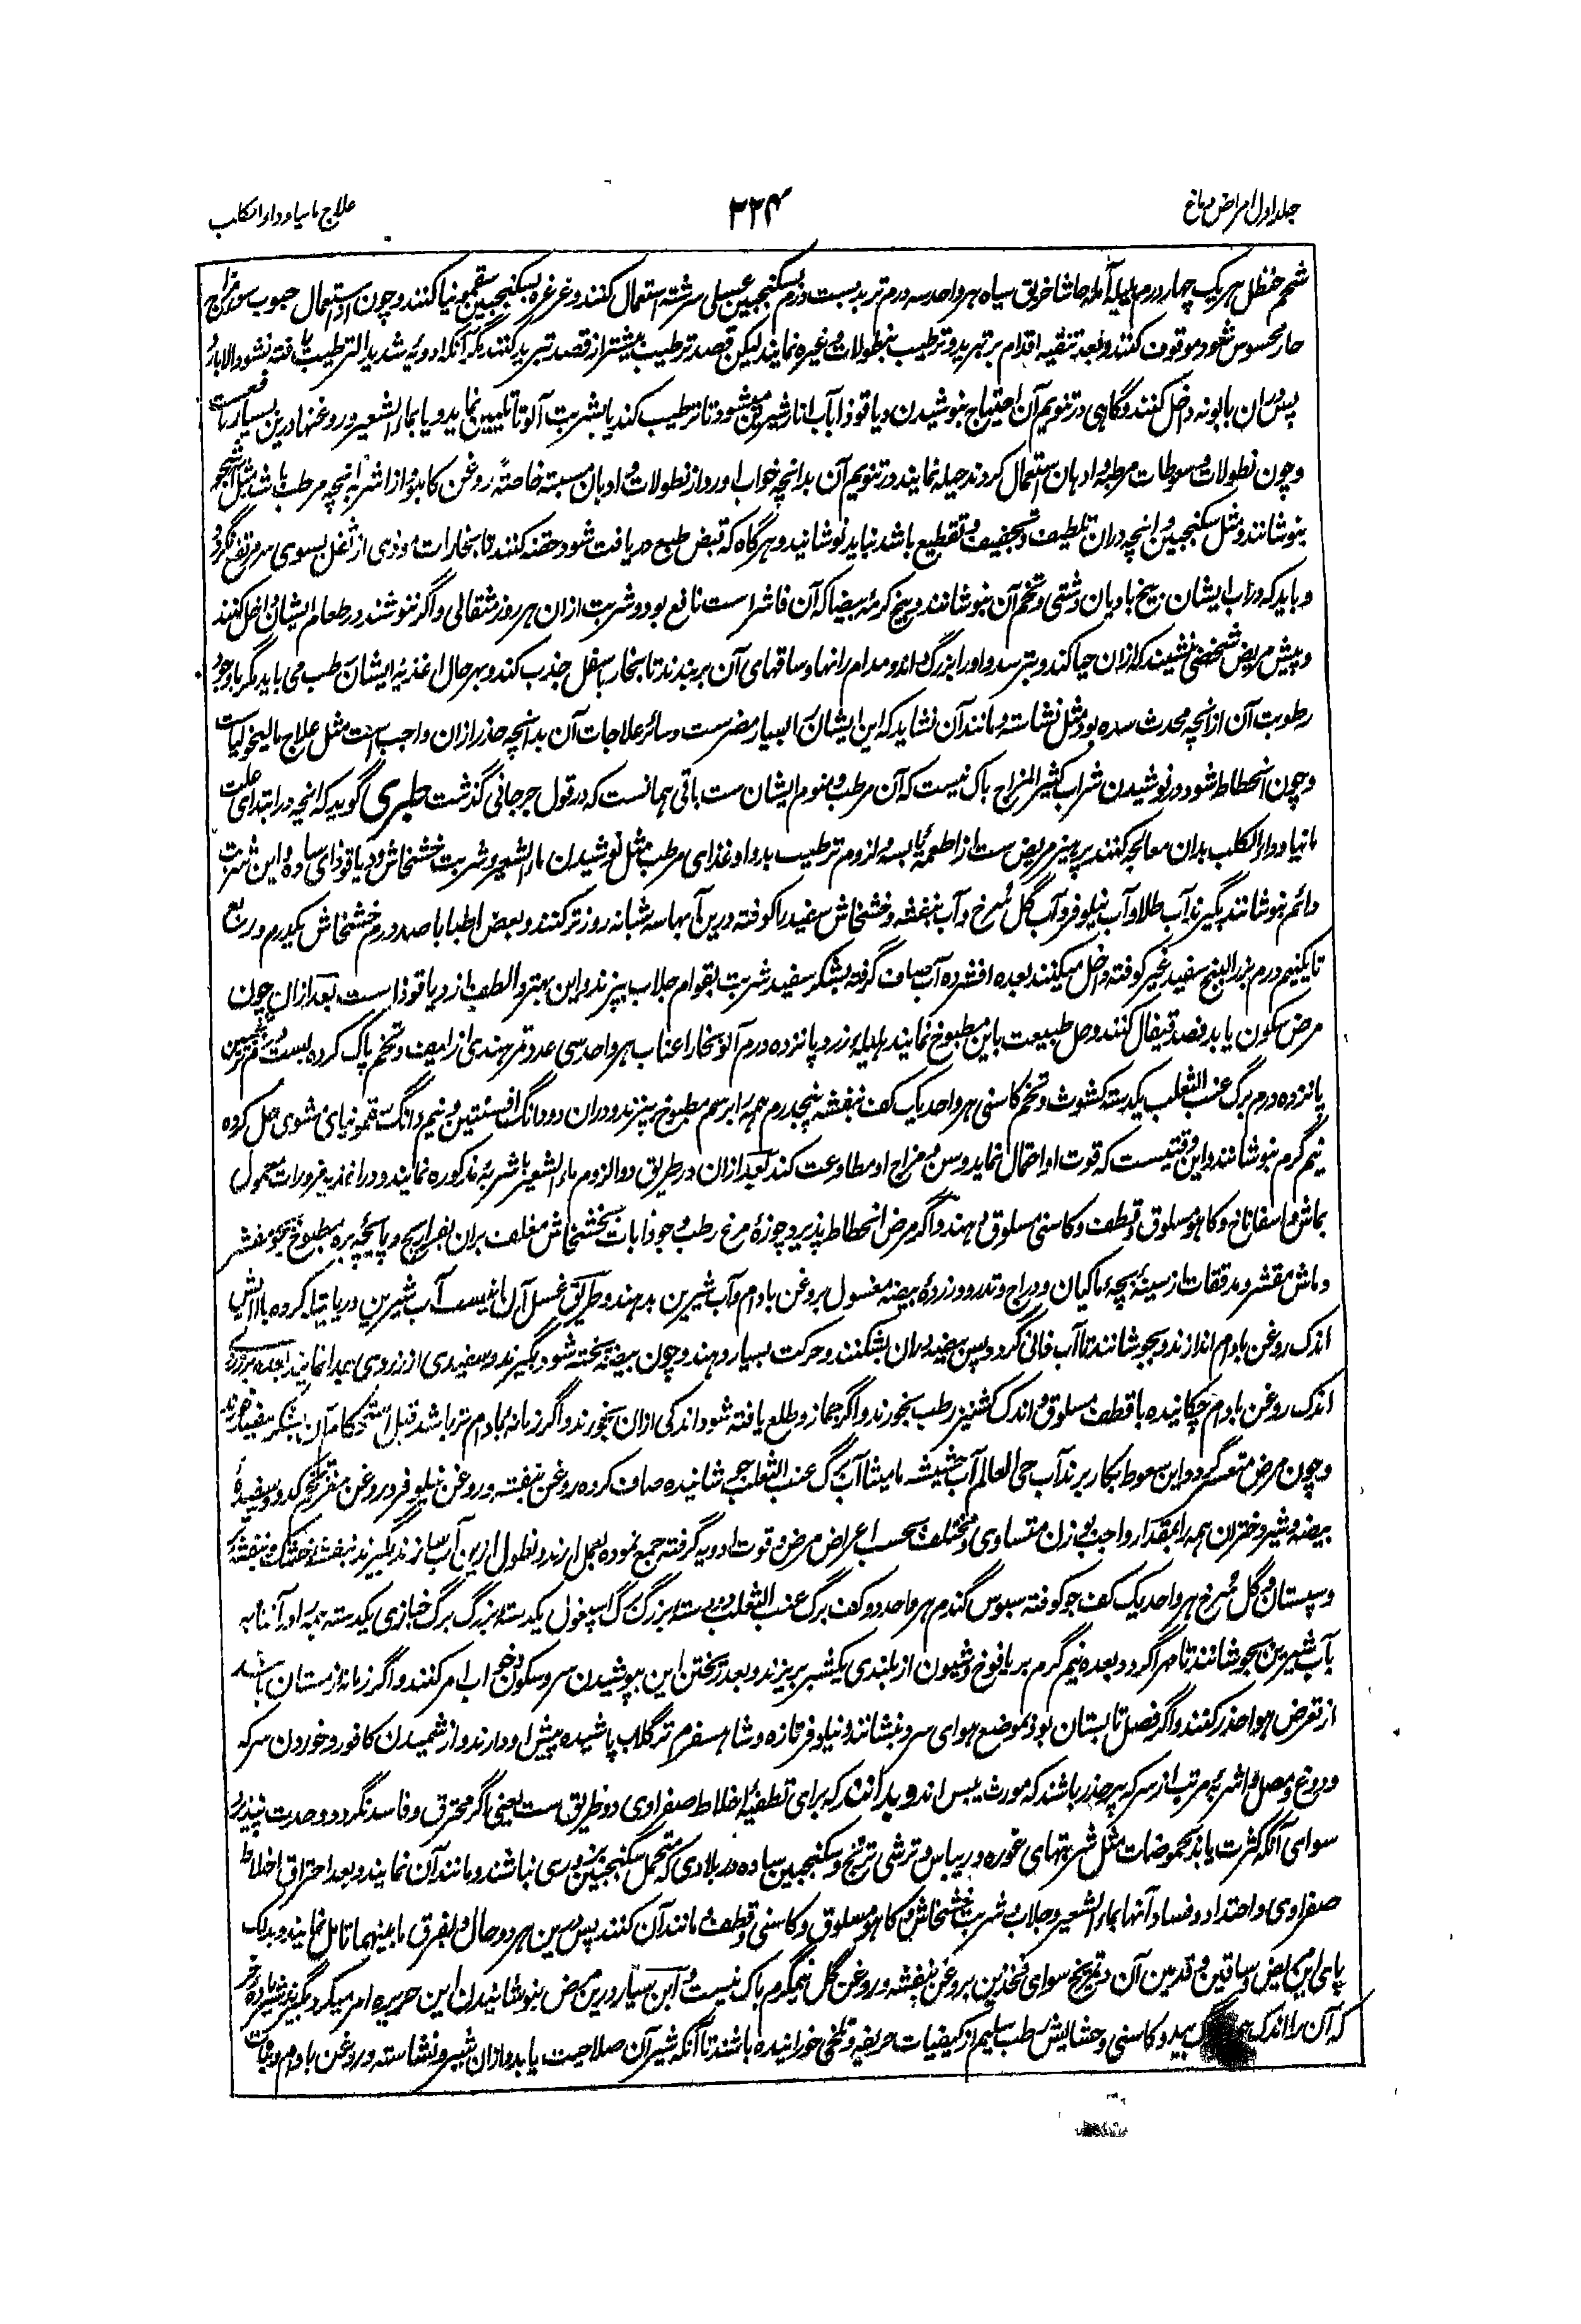 جلد اول امراض دماغ
۲۲۴
علاج مانیا و داء الکلب
شحم حنظل هر یک چهار درم هلیله آمله حاشا خربق سیاه هر واحد سه درم تربد بست درم بسکنجبین عسلی سرشته استعمال کنند و غرغره بسکنجبین سقمونیا کنند و چون از استعمال حبوب سوء مزاج
حار محسوس شود موقوف کنند و بعد تنقیه اقدام بر تبرید و ترطیب بنطولات و غیره نمایند لیکن قصد ترطیب بیشتر از قصد تبرید کنند مگر آنکه ادویه شدید الترطیب یافته نشود الا بارد
پس دران بابونه داخل کنند و گاهی در تنویم آن احتیاج بنوشیدن دیاقوذا بآب انار شیرین میشود تا ترطیب کند یا بشربت آلو تا تلیین نماید و یا بماء الشعیر و روغنها درین بسیار نافعست
و چون نطولات و سعوطات مرطبه و ادهان استعمال کردند حیله نمایند در تنویم آن بدانچه خواب آورد از نطولات و ادهان مسبته خاصة روغن کاهو و از اشربه آنچه مرطب باشد مثل
بنوشانند و مثل سکنجبین و آنچه دران تلطیف و تجفیف و تقطیع باشد نباید نوشانید و هر گاه که قبض طبع دریافت شود حقنه کنند تا بخارات موذی از ثفل بسوی سر مرتفع نگردد
و باید که در آب ایشان بیخ بادیان دشتی و تخم آن بنوشانند و بیخ کرمه بیضا که آن فاشراست نافع بود و شربت ازان هر روز مثقالی و اگر ننوشند در طعام ایشان داخل کنند
و پیش مریض شخصی نشیند که ازان حیا کند و بترسد و او را بزرگ داند و مدام رانها و ساقهای آن بربندند تا بخار باسفل جذب کند و بهر حال اغذیه ایشان رطب می باید مگر باوجود
رطوبت آن از آنچه محدث سده بود مثل نشاسته و مانند آن نشاید که این ایشان را بسیار مضرست و سائر علاجات آن بدانچه حذر ازان واجب است مثل علاج مالیخولیاست
و چون انحطاط شود در نوشیدن شراب کثیر المزاج باک نیست که آن مرطب و منوم ایشان ست باقی همانست که در قول جرجانی گذشت طبری گوید که آنچه در ابتدای علت
مانیا و داء الکلب بدان معالجه کنند پرهیز مریض ست از اطعمه یابسه و لزوم ترطیب بدوا و غذای مرطب مثل نوشیدن ماء الشعیر و شربت خشخاش و دیاقوذای ساده و این شربت
دائم بنوشانند بگیرند آب طلا و آب نیلوفر و آب گل سرخ و آب بنفشه و خشخاش سفید را کوفته درین آبها سه شبانه روز تر کنند و بعض اطبا با صد درم خشخاش یکدرم و ربع
تا یکنیم درم بزر البنج سفید غیر کوفته داخل میکنند بعده افشرده آب صاف گرفته بشکر سفید شربت بقوام جلاب بپزند و این بهتر و الطف از دیاقوذا ست بعد ازان چون
مرض سکون یابد فصد قیفال کنند و حل طبیعت باین مطبوخ نمایند هلیله زرد پانزده درم آلو بخارا عناب هر واحد سی عدد تمر هندی از لیف و تخم پاک کرده بست درم ترنجبین
پانزده درم برگ عنب الثعلب یکدسته کشوث و تخم کاسنی هر واحد یک کف بنفشه پنجدرم همه را برسم مطبوخ بپزند و دران دو دانگ افسنتین و نیم دانگ سقمونیای مشوی حل کرده
نیم گرم بنوشانند و این وقتیست که قوت او احتمال نماید و سن و مزاج او مطاوعت کند بعد ازان در طریق دوا لزوم ماء الشعیر باشربه مذکوره نمایند و در اغذیه مزورات معمول
بماش و اسفاناخ و کاهو مسلوق و قطف و کاسنی مسلوق دهند و اگر مرض انحطاط پذیرد چوزهٔ مرغ رطب و جوذابات بخشخاش مغلف بران بفراریج و پاچهٔ بره مطبوخ بجو مقشر
و ماش مقشر و مدققات از سینهٔ بچهٔ ماکیان و دراج و تدرو و زردهٔ بیضه مغسول بروغن بادام و آب شیرین بدهند و طریق غسل آن اینست آب شیرین در پاتیله کرده بالایش
اندک روغن بادام اندازند و بجوشانند تا آب فانی گردد پس بیضه بران بشکنند و حرکت بسیار دهند و چون بیضه پخته شود بگیرند و سفیدی از زردی جدا نمایند بعده بر زردی
اندک روغن بادام چکانیده با قطف مسلوق و اندک کشنیز رطب بخورند و اگر جمار و طلع یافته شود اندکی ازان بخورند و اگر زمانه بادام تر باشد قبل استحکام آن بشکر سفید خورند
و چون مرض متعسر گردد این سعوط بکار برند آب حی العالم آب حشیشه مامیثا آب برگ عنب الثعلب جوشانیده صاف کرده روغن بنفشه و روغن نیلوفر و روغن مغز تخم کدو و سفیدهٔ
بیضه و شیر دختران همه را بمقدار واجب بوزن متساوی و مختلف بحسب اعراض مرض و قوت ادویه گرفته جمع نموده بعمل آرند و نطول ازین آب سازند بگیرند بنفشه خشک و بنفشه
و سپستان و گل سرخ هر واحد یک کف جو کوفته سبوس گندم هر واحد دو کف برگ عنب الثعلب دو دسته بزرگ برگ اسپغول یکدسته بزرگ برگ خبازی یکدسته همه را در آفتابه
بآب شیرین بجوشانند تا مهرا گردد و بعده نیم گرم بر یافوخ و شیون از بلندی یکشبر بریزند و بعد ریختن این بپوشیدن سر و سکون و خواب امر کنند و اگر زمانه زمستان باشد
از تعرض هوا حذر کنند و اگر فصل تابستان بود بموضع هوای سرد بنشانند و نیلوفر تازه و شاهسفرم تر گلاب پاشیده پیش او دارند و از شمیدن کافور و خوردن سرکه
و دوغ و مصل و اشربه مرتب از سرکه پر حذر باشند که مورث یبس اند و بدانند که برای تطفیهٔ اخلاط صفراوی دو طریق ست یعنی اگر محترق و فاسد نگردد و حدت نپذیرد
سوای آنکه کثرت یابد بحموضات مثل شربتهای غوره و ریباس و ترشی ترنج و سکنجبین ساده در بلادی که متحمل سکنجبین بزوری نباشند و مانند آن نمایند و بعد احتراق اخلاط
صفراوی و احتداد و فساد آنها بماء الشعیر و جلاب و شربت خشخاش و کاهو مسلوق و کاسنی و قطف و مانند آن کنند پس درین هر دو حال و بفرق مابینهما تامل نمایند و بدلک
پای این مریض و ساقین و قدمین آن و تمریخ سوای فخذین بروغن بنفشه و روغن گل نیمگرم باک نیست و ابن سیار درین مرض بنوشانیدن این حریره امر میکرد بگیرند شیر ماده خر
که آن را اندک بید و کاسنی و حشایش رطب سلیم از کیفیات حریفه و تلخی خورانیده باشند تا آنکه شیر آن صلاحیت یابد و ازان شیر و نشاسته و روغن بادام